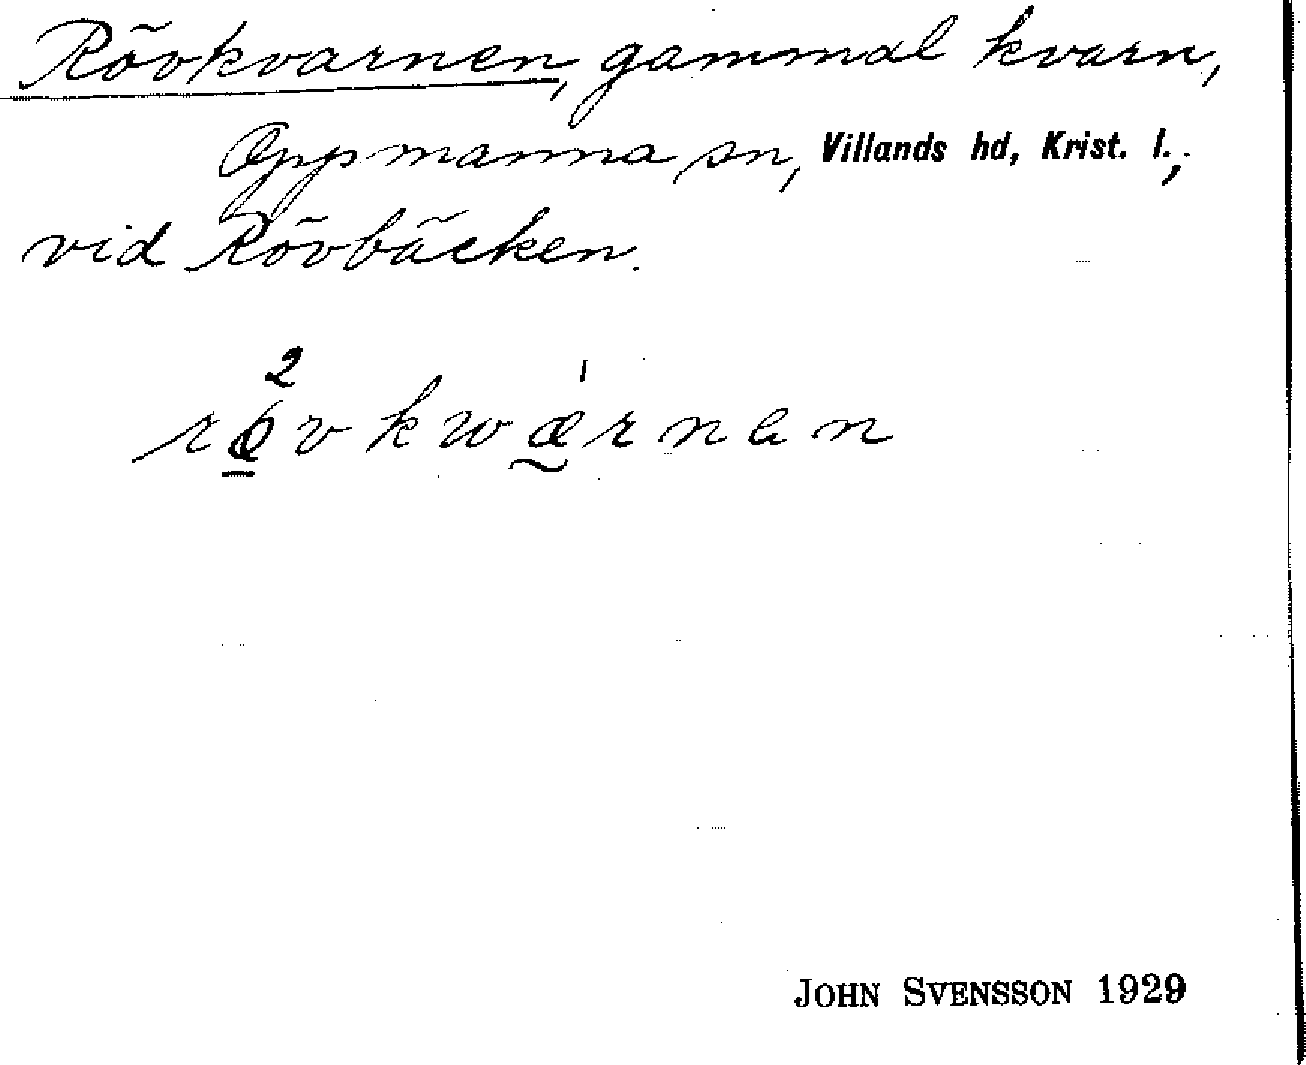 Rövkvarnen, gammal kvarn,
Oppmanna sn, Villands hd, Krist. l.,
vid Rövbäcken.
2 ı
røvkwærnen
JOHN SVENSSON 1929